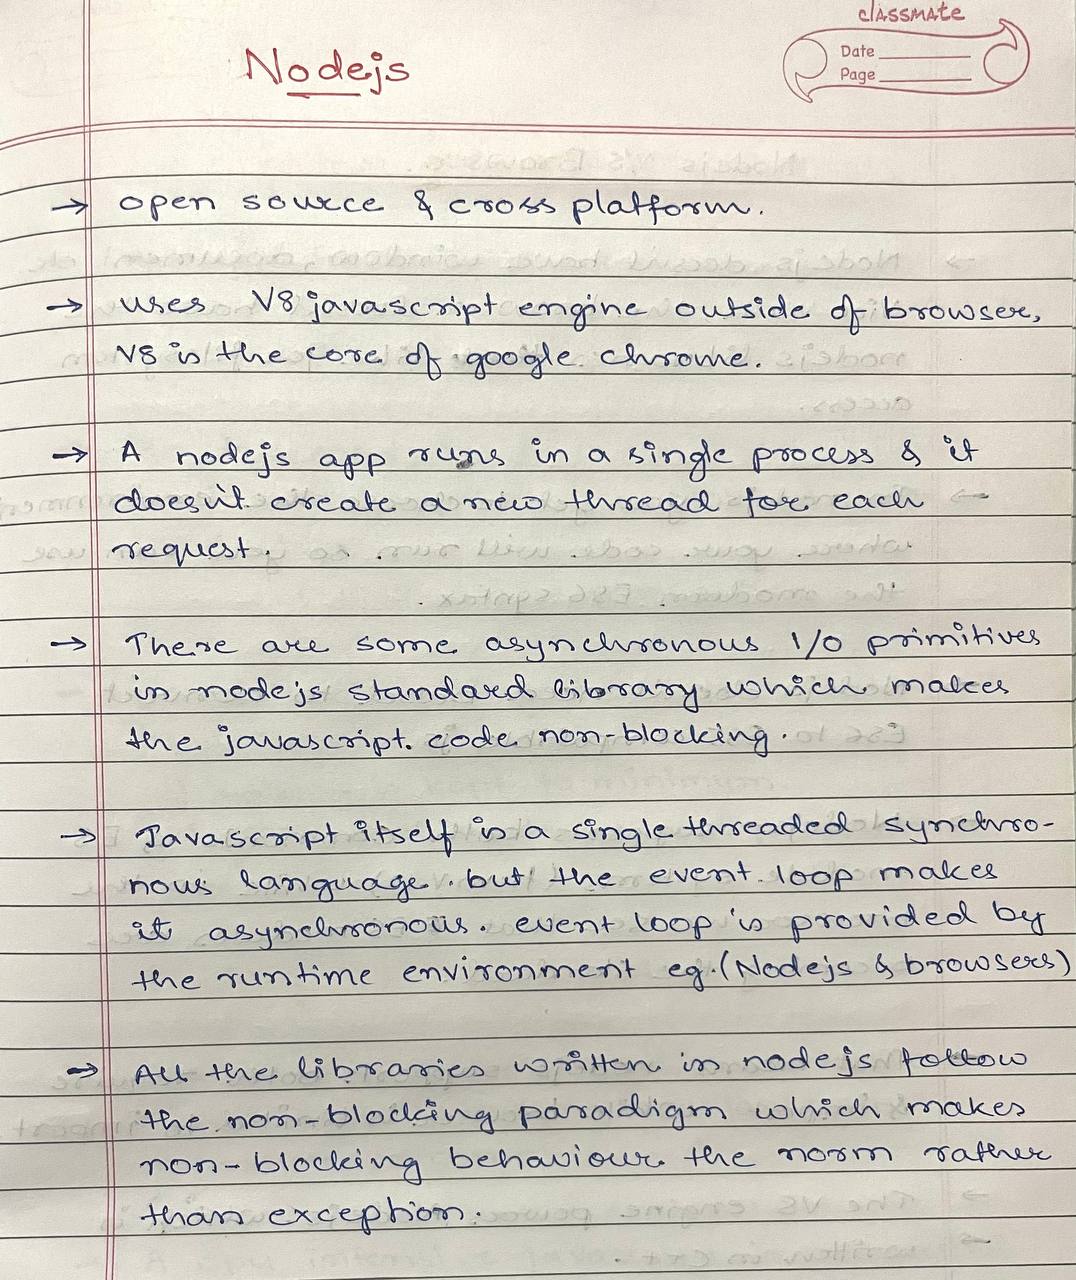 classmate
Date
Page
Nodejs
→ open source & cross platform.
→ uses V8 javascript engine outside of browser,
V8 is the core of google chrome.
→ A nodejs app runs in a single process & it
doesn't create a new thread for each
request.
→ There are some asynchronous I/O primitives
in nodejs standard library which makes
the javascript code non-blocking.
→ Javascript itself is a single threaded synchro-
nous language but the event loop makes
it asynchronous. event loop is provided by
the runtime environment eg.(Nodejs & browsers)
→ All the libraries written in nodejs follow
the non-blocking paradigm which makes
non-blocking behaviour the norm rather
than exception.